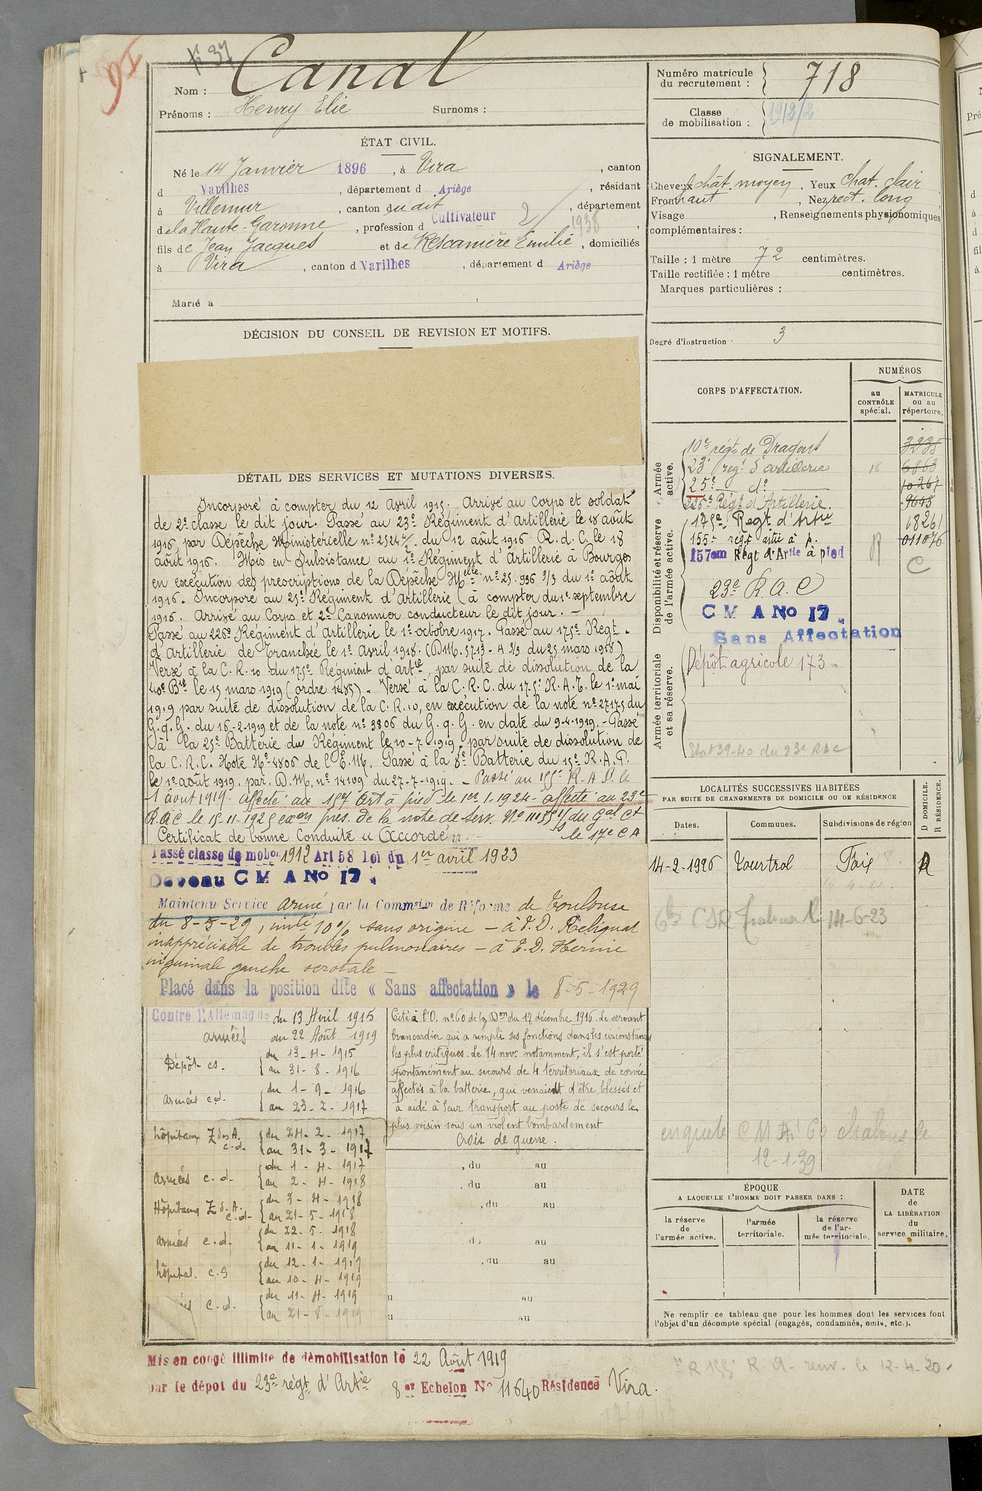 91
N° 37
Nom : Canal
Prénoms : Henry Elie Surnoms :
ÉTAT CIVIL.
Né le 14 Janvier 1896, à Vira, canton
d Varilhes, département d Ariège, résidant
à Villemur, canton du dit, département
de la Haute-Garonne, profession d Cultivateur 2
1938
fils de Jean Jacques et de Emilie, domiciliés
à Vira, canton d Varilhes, département d Ariège
Marié à
DÉCISION DU CONSEIL DE REVISION ET MOTIFS.
DÉTAIL DES SERVICES ET MUTATIONS DIVERSES.
Incorporé à compter du 12 Avril 1915. Arrivé au Corps et soldat
de 2e classe le dit jour. Passé au 23e Régiment d'Artillerie le 18 août
1916 par Dépêche Ministerielle n° 2524 du 12 août 1916 R. d. C. le 18
août 1916. Mis en Subsistance au 1er Régiment d'Artillerie à Bourges
en execution des prescriptions de la Dépêche Mlle n° 25.996 2/3 du 1er août
1916. Incorporé au 25e Régiment d'Artillerie à compter du 1er septembre
1916. Arrivé au Corps et 2e Canonnier conducteur le dit jour. —
Passé au 226e Régiment d'Artillerie le 1er octobre 1917. Passé au 175e Régt.
d'Artillerie de tranchée le 1er Avril 1918. (D.M. 5713. A 2/3 du 25 mars 1918)
Versé à la C.R. 10 du 175e Régiment d'artie, par suite de dissolution de la
40e Bie le 15 mars 1919 (ordre 1485). Versé à la C.R.C. du 175e R.A.T. le 1er mai
1919 par suite de dissolution de la C.R. 10, en exécution de la note n° 27175 du
G.Q.G. du 16-2-1919 et de la note n° 3806 du G.Q.G. en date du 9-4-1919. Passé
à la 25e Batterie du Régiment le 10-7-1919. par suite de dissolution de
la C.R.C. Note N° 4806 de l'E.M. Passé à la 8e Batterie du 155e R.A.P.
le 1er août 1919. par. D.M. n° 14109 du 27-7-1919. — Passé au 155e R.A.P. le
1 août 1919. affecté au 157 Art à pied le 1er.1.1924 - affecté au 23e
R.A.C le 15-11-1925 de la note de serv. du Gal Ct
Certificat de bonne Conduite "Accordé" le 17e C A
Passé classe de mobon 1912 Art 58 loi du 1er avril 1923
Devenu C M A No 17
Maintenu Service armé par la Commission de Réforme de Toulouse
du 8-5-29, invté 10% sans origine — à I.D. Reliquat
inappréciable de troubles pulmonaires — à E.D. Hernie
inguinale gauche scrotale —
Placé dans la position dite « Sans affectation » le 8-5-1929
Contre l'Allemagne du 13 Avril 1915
armées au 22 Août 1919
Dépôt cs. du 13-4-1915
au 31-8-1916
armées cd. du 1-9-1916
au 23-2-1917
hôpitaux Z.d.A. c.d. du 24-2-1917
au 31-3-1917
armées c.d. du 1-4-1917
au 2-4-1918
Hôpitaux Z.d.A. c.d. du 3-4-1918
au 21-5-1918
armées c.d. du 22-5-1918
au 11-1-1919
hôpital c.s du 12-1-1919
au 10-4-1919
c.d. du 11-4-1919
au 21-8-1919
Cité à l'O. n° 60 de la Don du 17 décembre 1916. de servant
brancardier qui a rempli ses fonctions dans les circonstances
les plus critiques. Le 14 nov. notamment, il s'est porté
spontanément au secours de 4 territoriaux de corvée
affectés à la batterie, qui venaient d'être blessés et
a aidé à leur transport au poste de secours le
plus voisin sous un violent bombardement
Croix de guerre.
, du au
, du au
, du au
, du au
, du au
u au
u au
Mis en congé illimité de démobilisation le 22 Août 1919
par le dépôt du 23e régt d'Artie 8e Echelon No 11640 Résidence Vira.
Numéro matricule du recrutement : 718
Classe de mobilisation : 1912/2
SIGNALEMENT.
Cheveux chât. moyen, Yeux Chat. clair
Front haut, Nez rect. long
Visage , Renseignements physionomiques
complémentaires :
Taille : 1 mètre 72 centimètres.
Taille rectifiée : 1 mètre centimètres.
Marques particulières :
Degré d'instruction 3
CORPS D'AFFECTATION.
NUMÉROS
au CONTRÔLE spécial.
MATRICULE ou au répertoire.
Armée active.
10e régt de Dragons 3235
23e régt d'artillerie 16 6863
25e — do — 10267
226e Régt d'Artillerie. 9043
Disponibilité et réserve de l'armée active.
175e Regt d'Artie 18261
155e régt artie à p. 011076
157em Régt d'Artie à pied C
23e R.A.C
C M A No 17
Sans Affectation
Armée territoriale et sa réserve.
Dépôt agricole 173
Etat 39-40 du 23e RAC
LOCALITÉS SUCCESSIVES HABITÉES
PAR SUITE DE CHANGEMENTS DE DOMICILE OU DE RÉSIDENCE
Dates. Communes. Subdivisions de région
D DOMICILE. R RÉSIDENCE.
14-2-1926 Tourtrol Foix R
14-6-23
enquete C M A
12-1-39
ÉPOQUE
A LAQUELLE L'HOMME DOIT PASSER DANS :
la réserve de l'armée active.
l'armée territoriale.
la réserve de l'armée territoriale.
DATE de LA LIBÉRATION du service militaire.
Ne remplir ce tableau que pour les hommes dont les services font
l'objet d'un décompte spécial (engagés, condamnés, omis, etc.).
R 155e R.A. renv. le 12-4-20